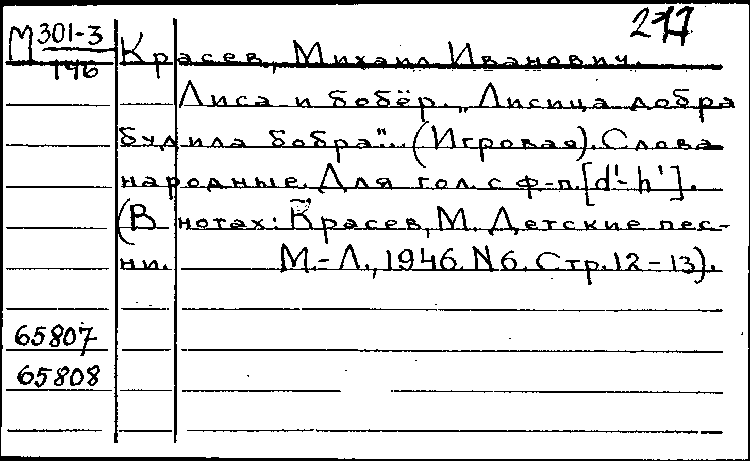 277
М 301-3
146
Красев, Михаил Иванович.
Лиса и бобёр. „Лисица добра
будила бобра”.. (Игровая). Слова
народные. Для гол. с ф-п. [d'- h'].
(В нотах: Красев, М. Детские пес-
ни. М.-Л., 1946. N6. Стр. 12-13).
65807
65808